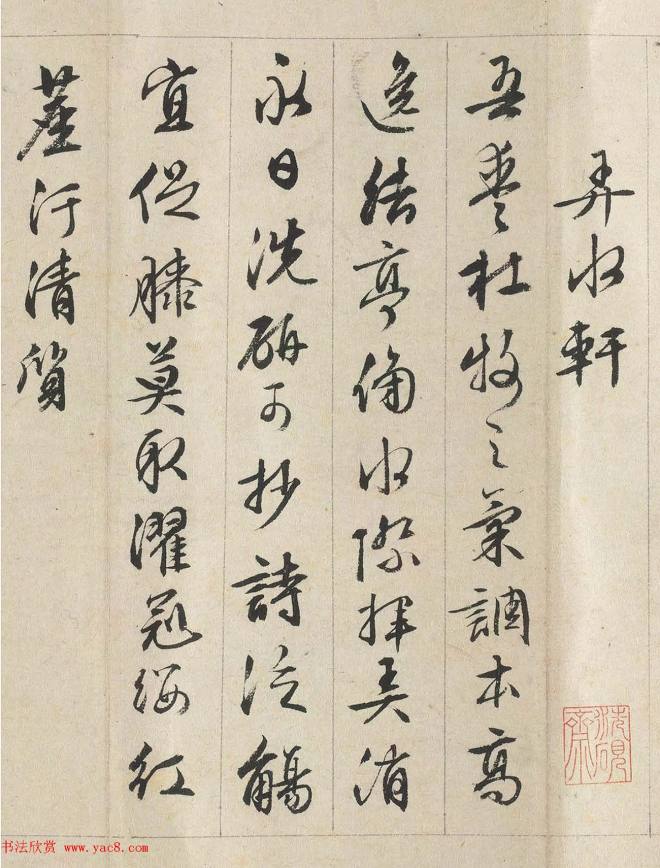 弄水軒
吾愛杜牧之氣調本高
逸結亭侵水際揮弄消
永日洗研可抄詩泛觴
宜促膝莫取濯冠纓紅
塵汙清質
洗硯齋
书法欣赏 www.yac8.com